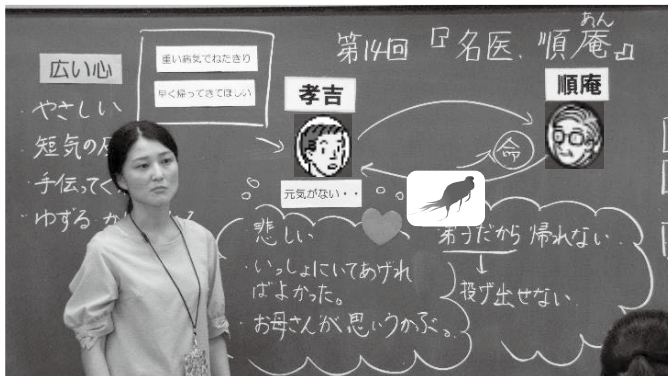 第14回『名医、順庵』
あん
広い心
・やさしい
・短気の
・手伝ってく
・ゆずる
重い病気でねたきり
早く帰ってきてほしい
孝吉
順庵
命
元気がない・・
悲しい
・いっしょにいてあげれ
ばよかった。
・お母さんが思いうかぶ。
弟子だから帰れない
投げ出せない